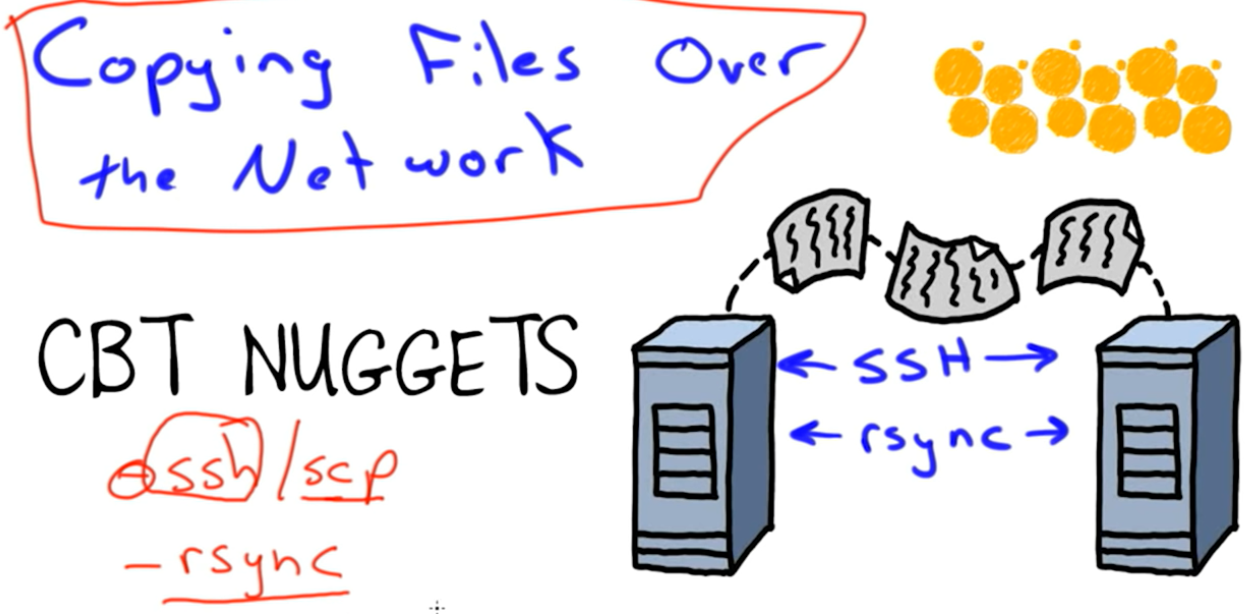 Copying Files Over
the Network
CBT NUGGETS
-ssh/scp
-rsync
SSH
rsync